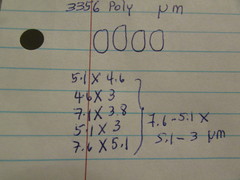 3356 Poly µm
5.1 X 4.6
4.6 X 3
7.1 X 3.8
5.1 X 3
7.6 X 5.1
7.6-5.1 X
5.1-3 µm